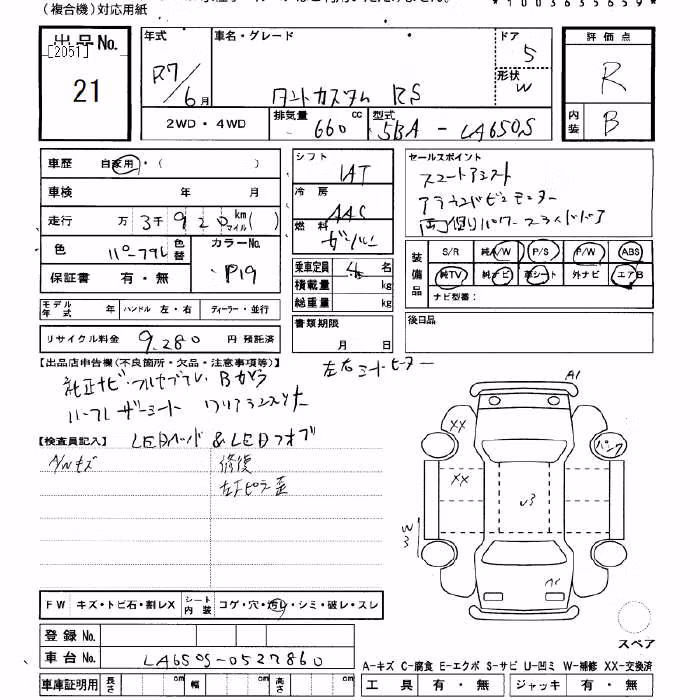 （複合機）対応用紙
*1003635659*
出品No.
[2051]
21
年式
R7/6月
車名・グレード
タントカスタム RS
ドア
5
形状
W
評価点
R
内装
B
2WD・4WD
排気量 660 cc
型式 5BA-LA650S
車歴 自家用・（ ）
車検 年 月
走行 万 3千920 km マイル（ ）
色 パープル
色替
カラーNo. P19
保証書 有・無
シフト IAT
冷房 AAC
燃料 ガソリン
乗車定員 4名
積載量 kg
総重量 kg
セールスポイント
スマートアシスト
アラウンドビューモニター
両側パワースライドドア
装備品
S/R 純A/W P/S P/W ABS
純TV 純ナビ 革シート 外ナビ エアB
ナビ型番：
モデル年式 年 ハンドル 左・右 ディーラー・並行
リサイクル料金 9,280 円 預託済
書類期限
月 日
後日品
【出品店申告欄（不良箇所・欠品・注意事項等）】
左右シートヒーター
純正ナビ・フルセグTV，Bカメラ
ハーフレザーシート
LEDヘッド&LEDフォグ
【検査員記入】
A/Wキズ
修復
左Fピラー歪
A1
XX
パンク
XX
U3
W3
A1
FW キズ・トビ石・割レX シート内装 コゲ・穴・汚レ・シミ・破レ・スレ
登録No.
車台No. LA650S-0527860
スペア
A-キズ C-腐食 E-エクボ S-サビ U-凹ミ W-補修 XX-交換済
車庫証明用 長さ cm 幅 cm 高さ cm
工具 有・無 ジャッキ 有・無